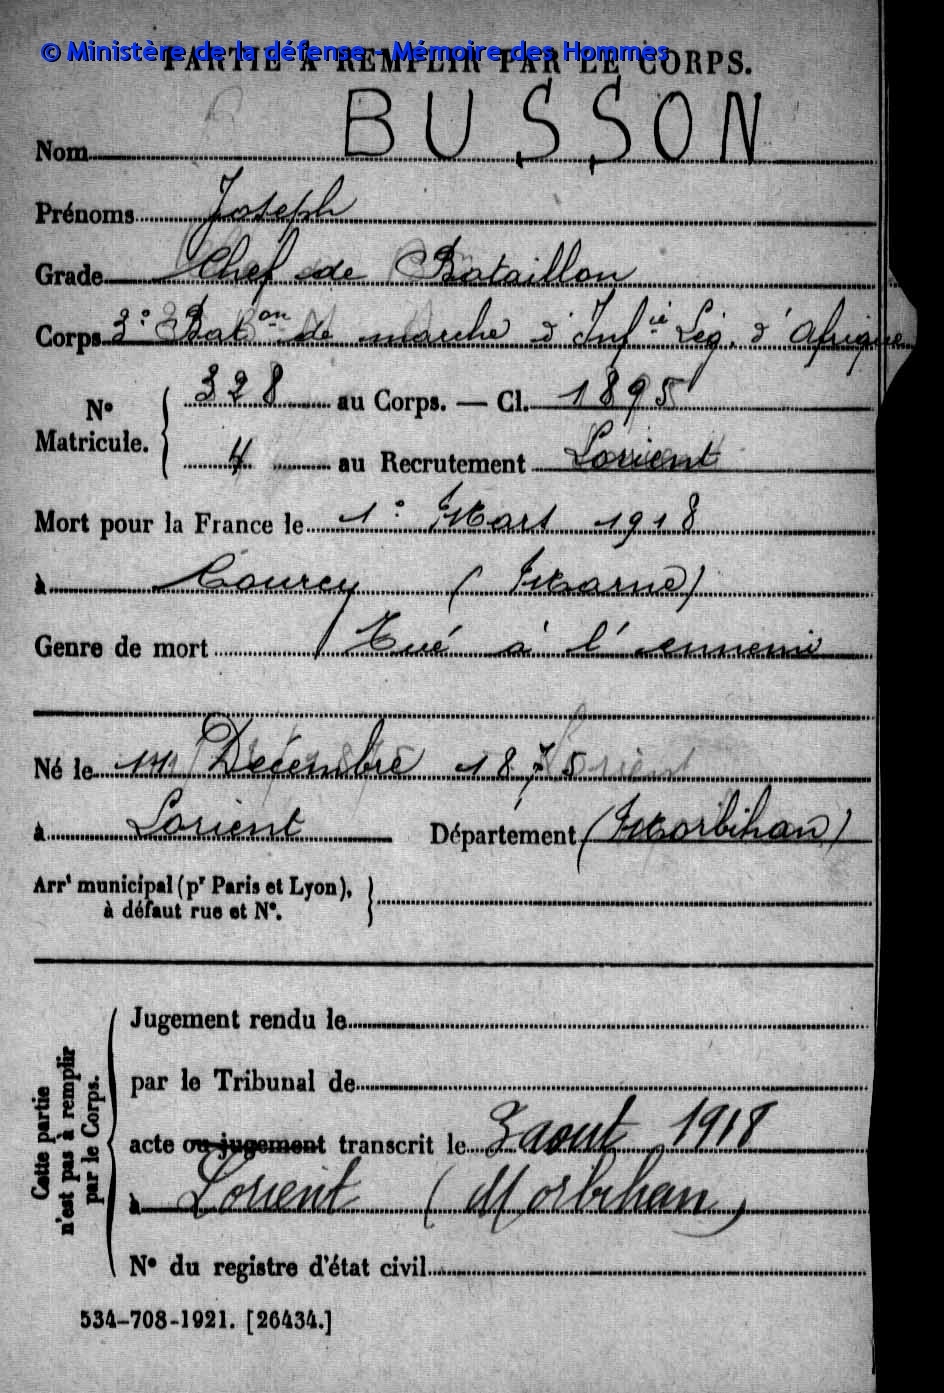 © Ministère de la défense - Mémoire des Hommes
PARTIE À REMPLIR PAR LE CORPS.
Nom BUSSON
Prénoms Joseph
Grade Chef de Bataillon
Corps 3e Baton de marche d'Infie Lég. d'Afrique
No Matricule. { 328 au Corps. — Cl. 1895
4 au Recrutement Lorient
Mort pour la France le 1o Mars 1918
à Courcy (Marne)
Genre de mort Tué à l'ennemi
Né le 14 Décembre 1875
à Lorient Département (Morbihan)
Arrt municipal (pr Paris et Lyon), à défaut rue et No. }
Cette partie n'est pas à remplir par le Corps.
Jugement rendu le
par le Tribunal de
acte ou jugement transcrit le 3 aout 1918
à Lorient (Morbihan)
No du registre d'état civil
534-708-1921. [26434.]